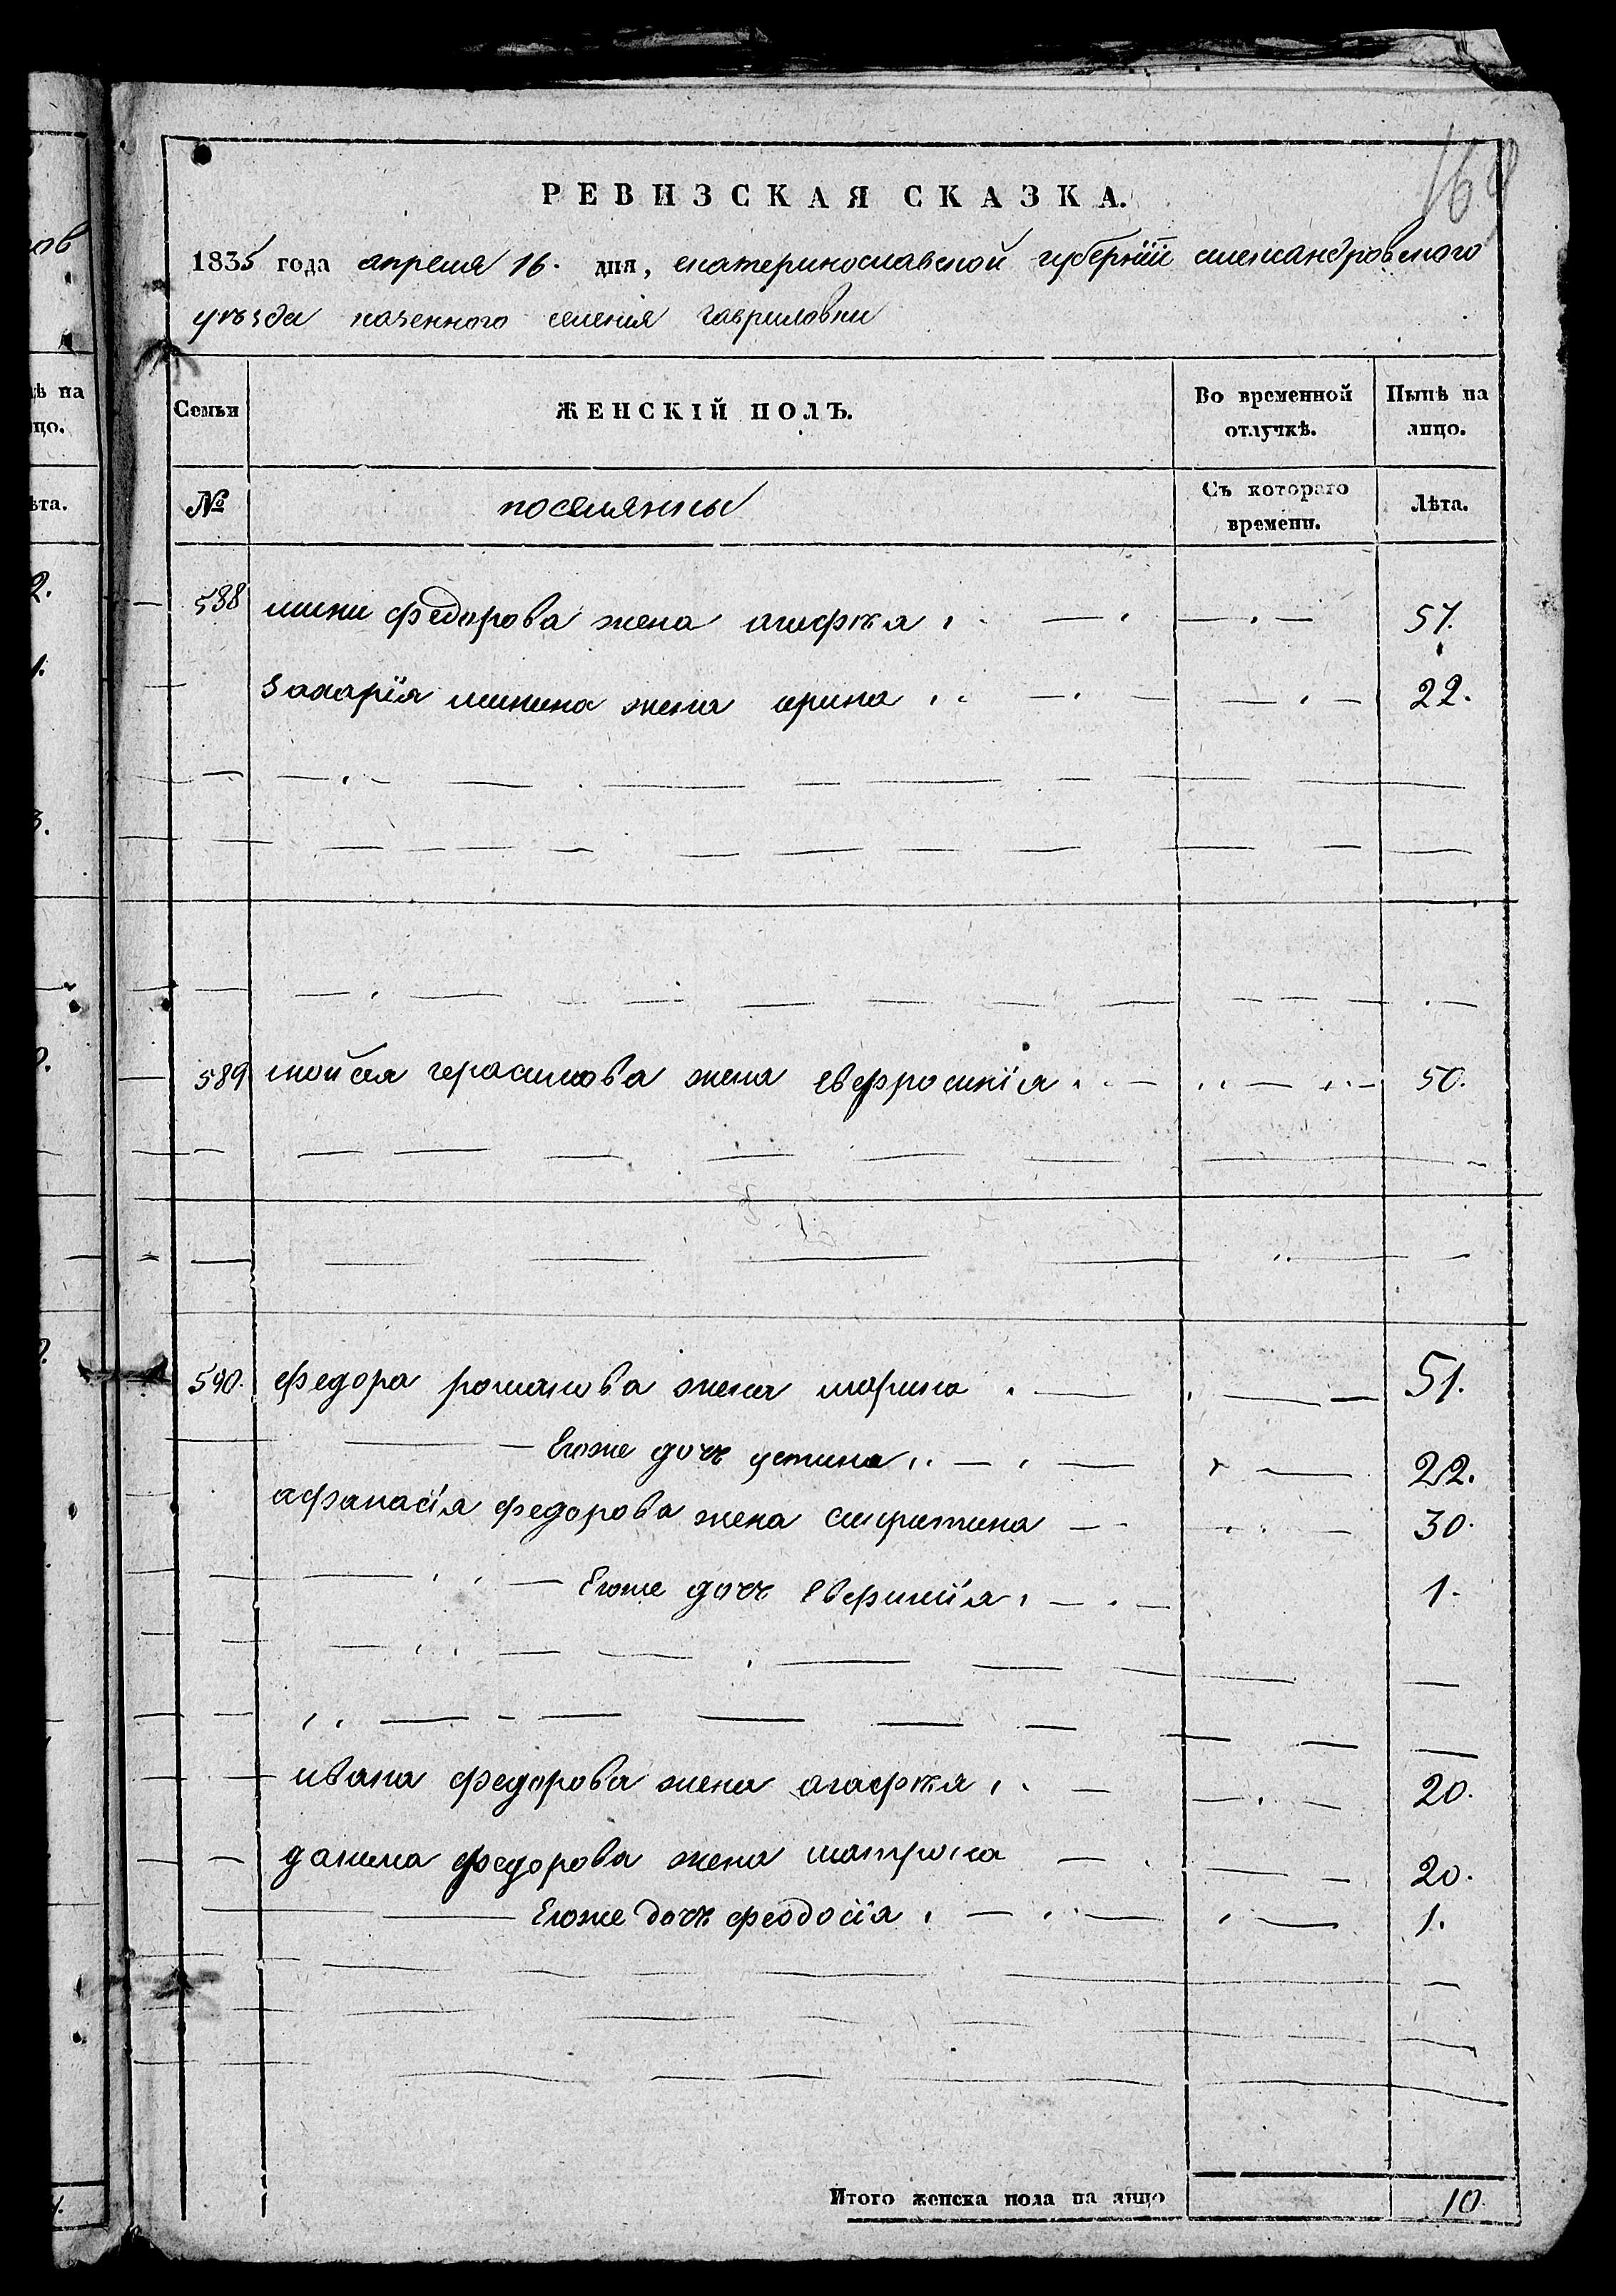 169
РЕВИЗСКАЯ СКАЗКА.
1835 года апреля 16. дня, екатеринославской губерніи александровского
уѣзда казенного селенія гавриловки
Семьи
ЖЕНСКІЙ ПОЛЪ.
Во временной отлучкѣ.
Нынѣ на лицо.
№
поселянсы
Съ котораго времени.
Лѣта.
538 мини федорова жена агафія 57.
захарія минина жена ирина 22.
589 мойсея герасимова жена евфросинія 50.
590. федора романова жена марина 51.
Егоже дочь устина 22.
афанасія федорова жена 30.
Егоже дочь 1.
ивана федорова жена агафія 20.
данила федорова жена матрона 20.
Егоже дочь феодосія 1.
Итого женска пола на лицо 10.